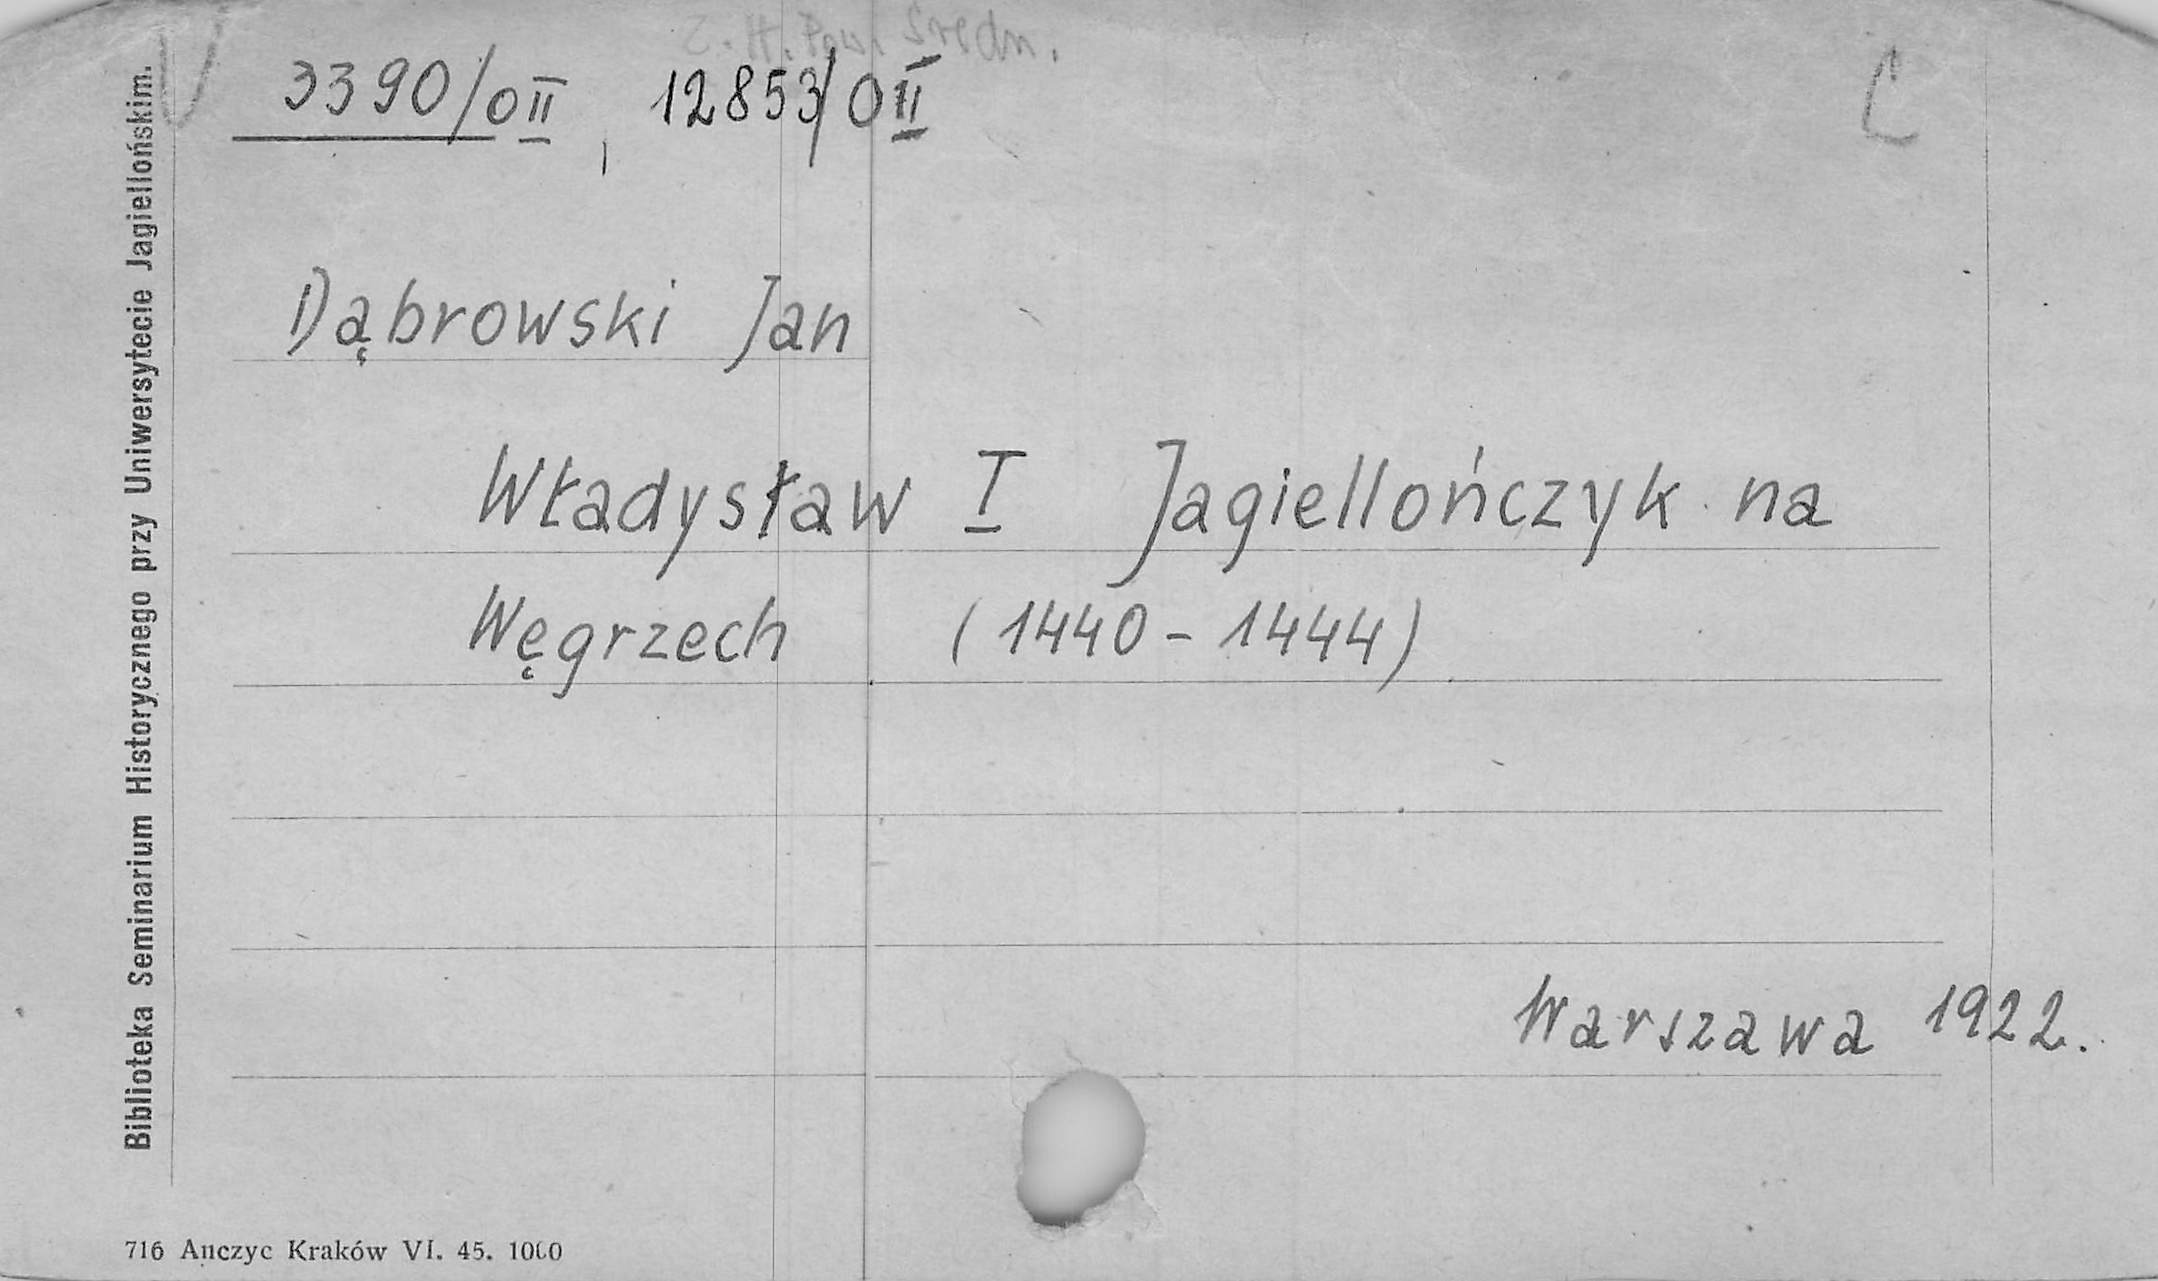 Z. H. Pow. Średn.
3390/OII, 12853/OII
C
Dąbrowski Jan
Władysław I Jagiellończyk na
Węgrzech (1440-1444)
Warszawa 1922.
Biblioteka Seminarium Historycznego przy Uniwersytecie Jagiellońskim.
716 Anczyc Kraków VI. 45. 1000